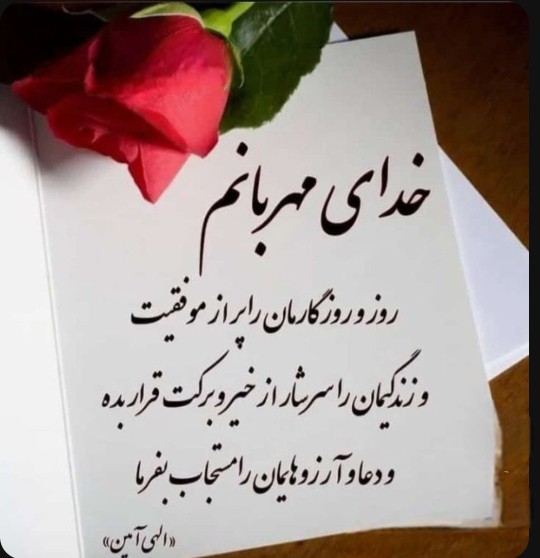 خدای مهربانم
روز و روزگارمان را پر از موفقیت
و زندگیمان را سرشار از خیر و برکت قرار بده
و دعا و آرزوهایمان را مستجاب بفرما
«الهی آمین»